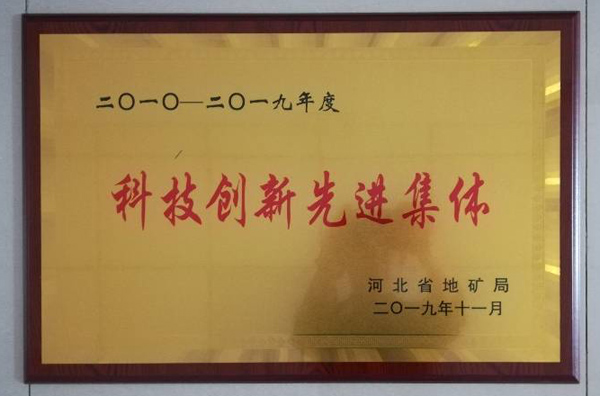 二〇一〇—二〇一九年度
科技创新先进集体
河北省地矿局
二〇一九年十一月